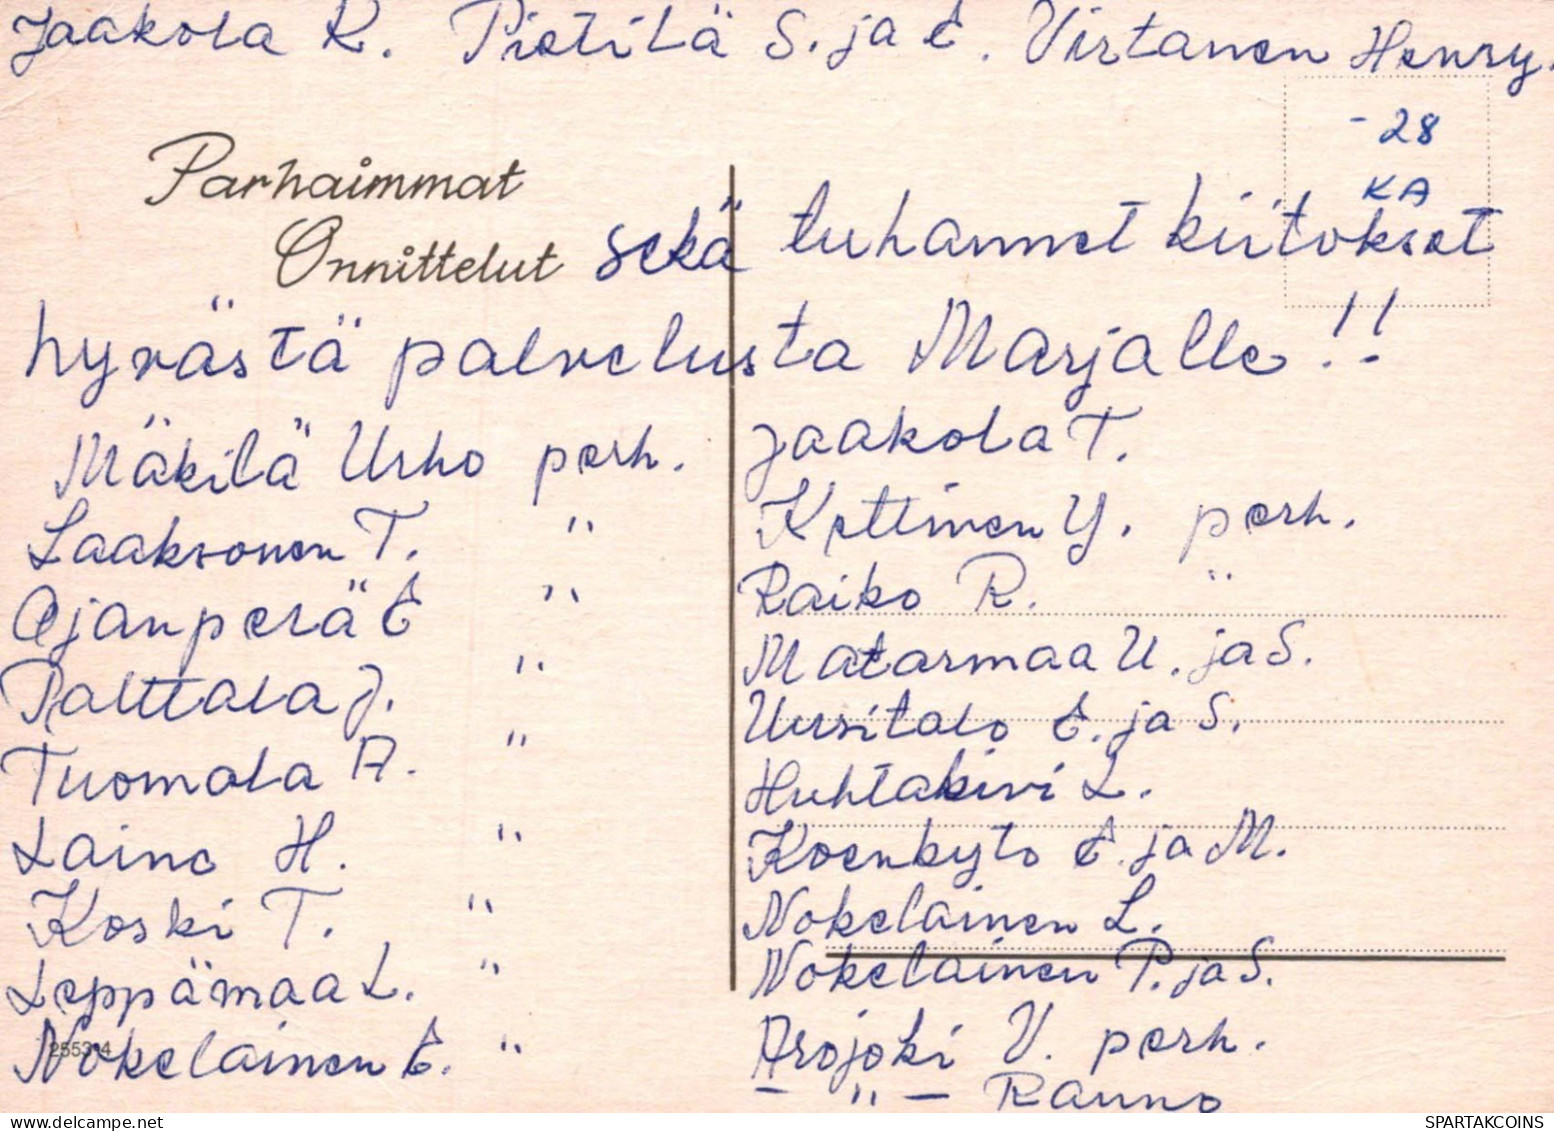 Jaakola R. Pietilä S. ja E. Virtanen Henry.
-28
KA
Parhaimmat
Onnittelut sekä tuhannet kiitokset
hyvästä palvelusta Marjalle!!
Mäkilä Urho perh.
Laaksonen T. "
Ajanperä E "
Palttala J. "
Tuomola A. "
Laino H. "
Koski T. "
Leppämaa L. "
Nokelainen E. "
Jaakola T.
Kettinen Y. perh.
Raiko R. "
Matarmaa U. ja S.
Uusitalo E. ja S.
Huhtakivi L.
Koenkytö E. ja M.
Nokelainen L.
Nokelainen P. ja S.
Arojoki V. perh.
— " — Rauno
SPARTAKCOINS